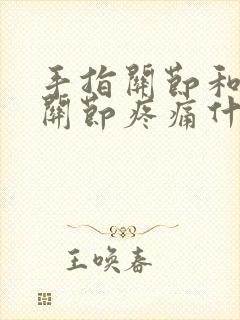 手指關節和
關節疼痛什
王喚春